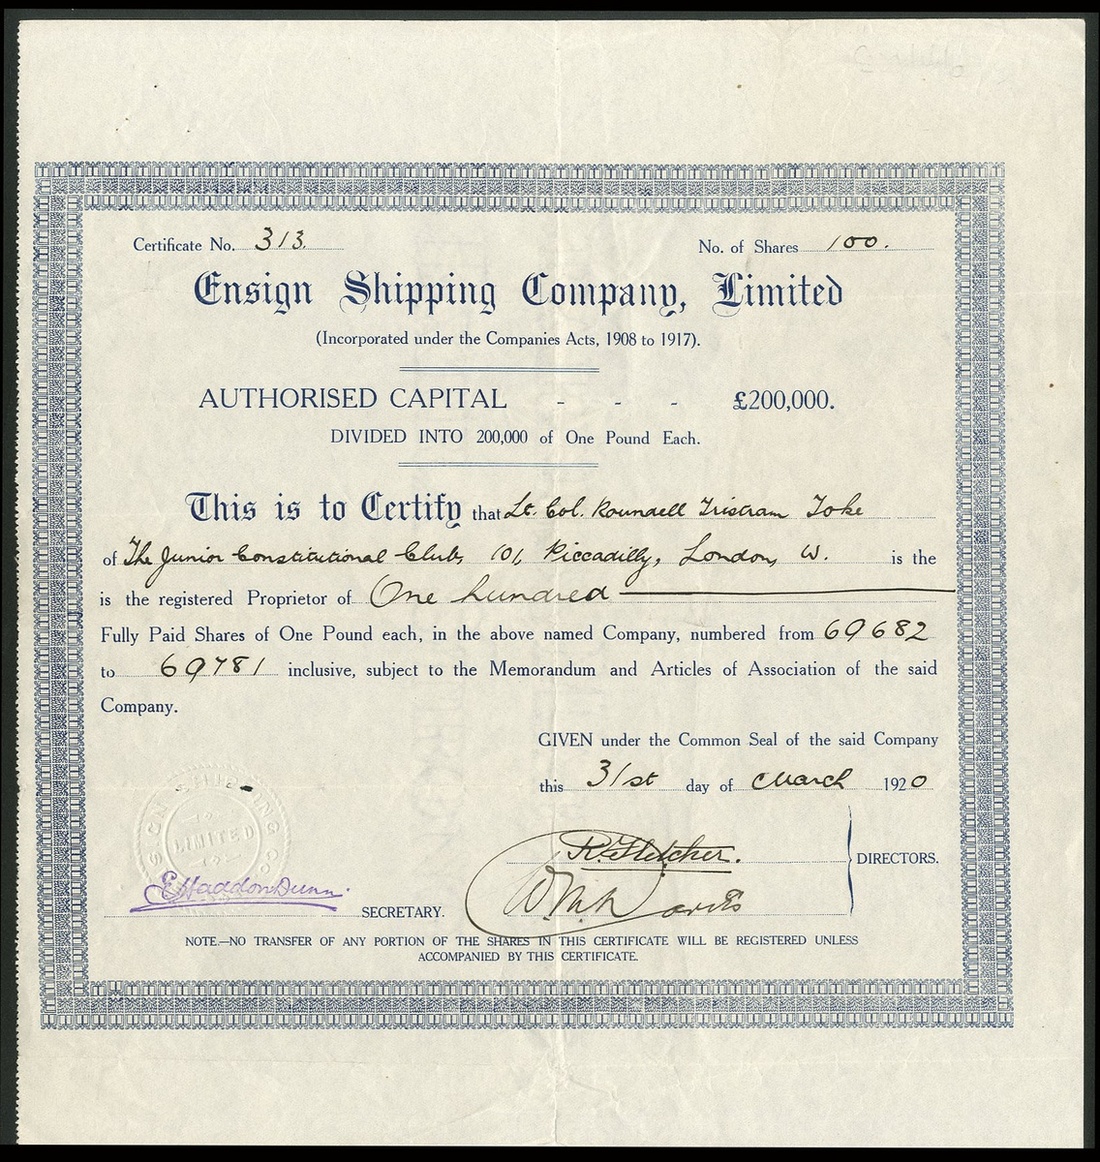 Certificate No. 313. No. of Shares 100.
Ensign Shipping Company, Limited
(Incorporated under the Companies Acts, 1908 to 1917).
AUTHORISED CAPITAL - - - £200,000.
DIVIDED INTO 200,000 of One Pound Each.
This is to Certify that Lt. Col. Roundell Tristram Toke
of The Junior Constitutional Club, 101, Piccadilly, London, W. is the
is the registered Proprietor of One hundred
Fully Paid Shares of One Pound each, in the above named Company, numbered from 69682
to 69781 inclusive, subject to the Memorandum and Articles of Association of the said
Company.
GIVEN under the Common Seal of the said Company
this 31st day of March 1920
R. Fletcher.
DIRECTORS.
LIMITED
E Haddon Dunn.
SECRETARY.
NOTE.—NO TRANSFER OF ANY PORTION OF THE SHARES IN THIS CERTIFICATE WILL BE REGISTERED UNLESS
ACCOMPANIED BY THIS CERTIFICATE.